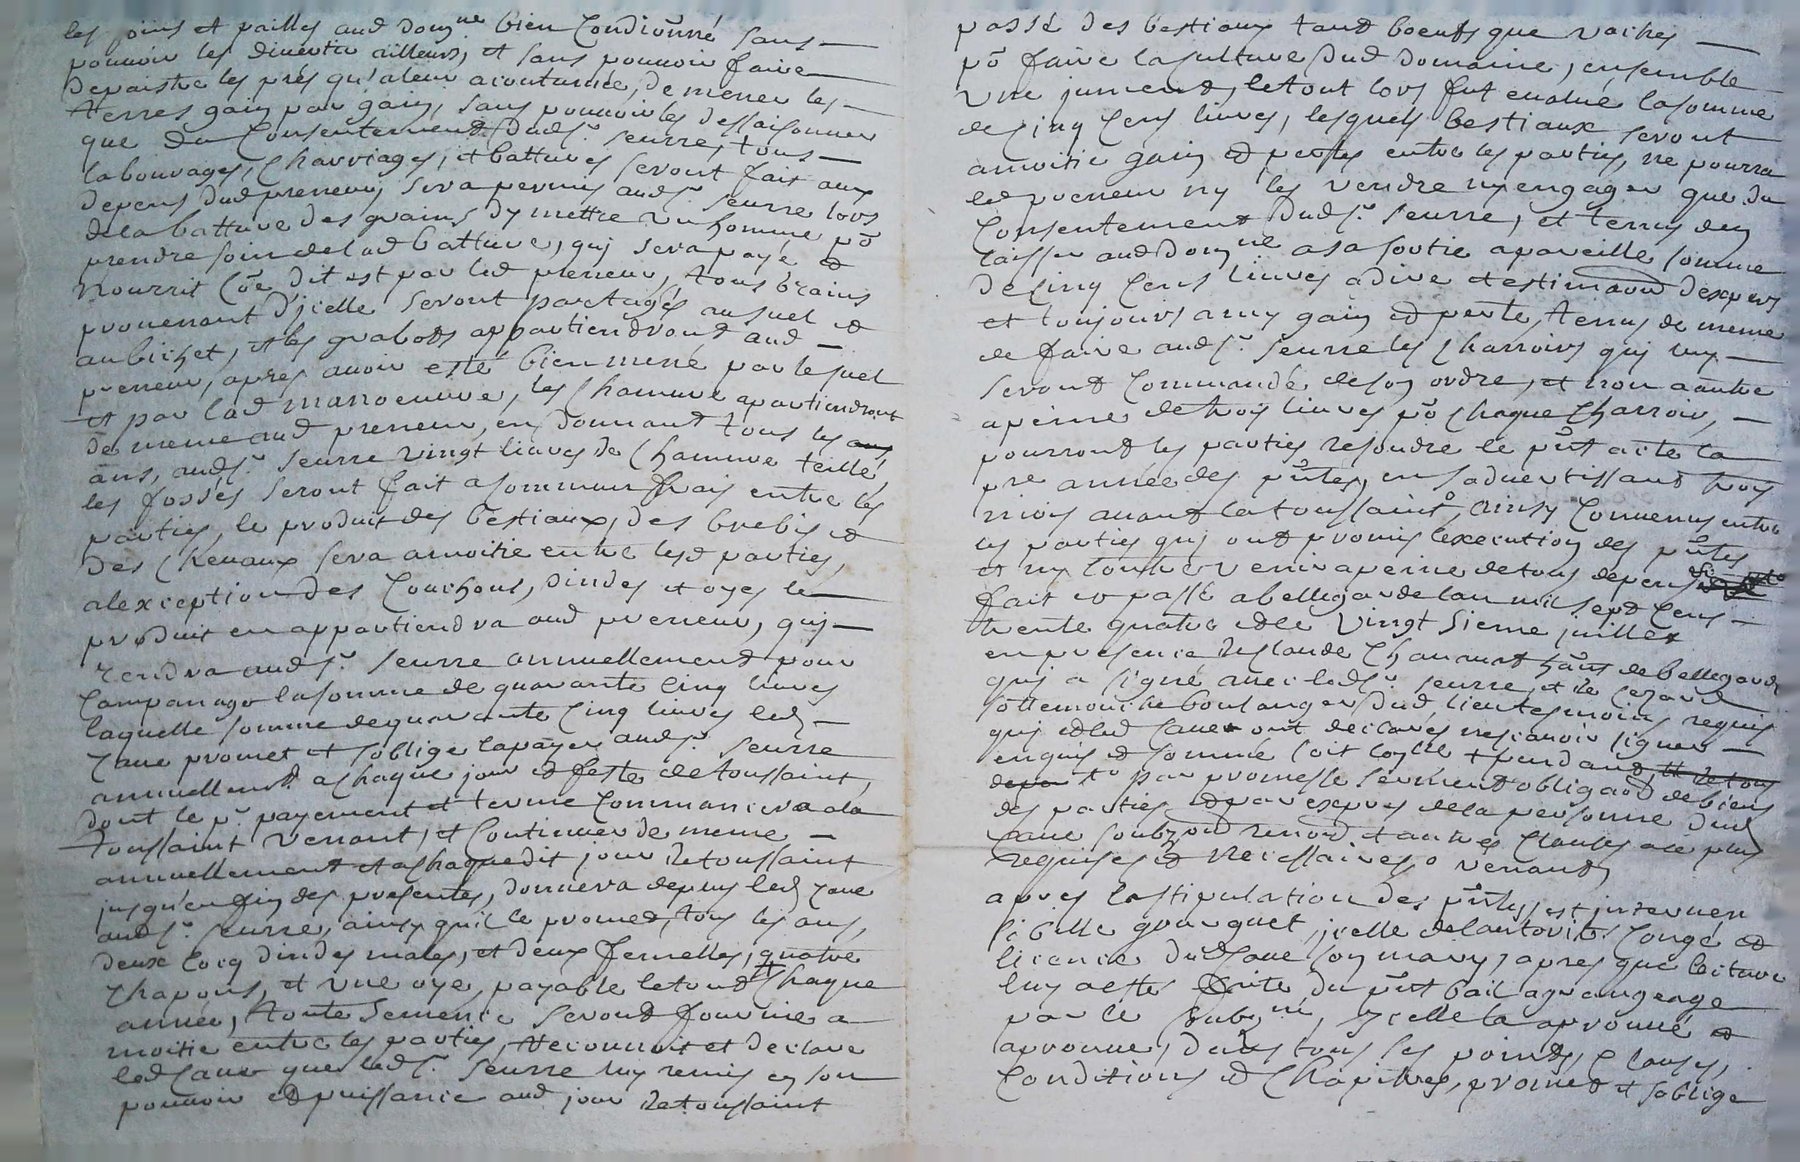 les foins et pailles aud domne bien Condionné sans
pouvoir les divertir ailleurs, et sans pouvoir faire
depaistre les prés qu'aleur acoutumée, de mener les
terres gain par gain, sans pouvoir les dessaisonner
que du Consentement dud sr seurre, tous
labourages, Charriages, et battures seront fait aux
depens dud preneur, sera permis aud sr seurre lors
dela batture des grains dy mettre un homme pō
prendre soin delad batture, qui sera payé et
nourrit Cōe dit est par led preneur, tous grains
provenant d'jcelle seront partagés ausuel et
aubichet, et les grabots appartiendront aud
preneur, apres avoir esté bien mené par lesuel
et par lad manoeuvre, les Chanvre apartiendront
de meme aud preneur, en donnant tous les ans
ans, aud sr seurre vingt livres de Chanvre teillé,
les fossés seront fait a commun frais entre les
parties, le produit des bestiaux, des brebis et
des Chevaux sera amoitie entre lesd parties,
alexception des Couchons, dindes et oyes le
produit en appartiendra aud preneur, qui
rendra aud sr seurre annuellement pour
Campanage lasomme de quarante cinq livres
laquelle somme dequarante Cinq livres led
Cave promet et soblige lapayer aud sr seurre
annuellemt achaque jour et feste detoussaint,
dont le pr payement et terme Commancera ala
toussaint venant, et Continuer de meme
annuellement et achaquedit jour detoussaint
jusqu'en fin des presentes, donnera depuis led Cave
aud sr seurre, ainsy qu'il le promet, tous les ans,
deux Cocq dindes males, et deux femelles, quatre
Chapons, et une oye, payable letout Chaque
année, toute semence seront fournie a
moitie entre les parties, Reconnoit et declare
led Cave que led sr seurre luy remis en son
pouvoir et puissance aud jour detoussaint
passé des bestiaux tant boeufs que vaches
pō faire laculture dud domaine, ensemble
une jument, letout lors fut evalué lasomme
de Cinq Cens livres, lesquels bestiaux seront
amoitie gain et pertes entre les parties, ne pourra
led preneur ny les vendre ny engager que du
Consentement dud sr seurre, et tenus den
laisser aud domne asa sortie apareille somme
de Cinq Cens livres adire et estimaōn dexpers
et toujours amy gain et perte, tenus de meme
de faire aud sr seurre les Charrois qui luy
seront Commandé deson ordre, et non aautre
apeine de trois livres pō Chaque Charroir,
pourront les parties resoudre le pñt acte la
pre année des pñtes, en sadvertissant trois
mois avant latoussaint, ainsy Convenus entre
les parties qui ont promis lexecution des pñtes
et ny Contrevenir apeine detous depens
fait et passé abellegarde lan mil sept Cens
trente quatre et le vingt sieme juillet
en presence de Claude hānt de bellegarde
qui a signé avec led sr seurre, et
boulanger dud lieu tesmoins requis
qui et led Cave ont declarés nescavoir signer
enquis et somme
par promesse serment obligaōn debiens
des parties et par expres dela personne dud
Cave et autres Clauses ace plus
requises et necessaires venant
apres lastipulation des pñtes, est intervenu
jcelle delautorité Congé et
licence dud Cave son mary, apres que lecture
luy aesté faite du pñt bail agrangeage
par le subzné, jcelle la aprouvé et
aprouve, dans tous ses points, Clauses,
Conditions et Chapitres, promet et soblige